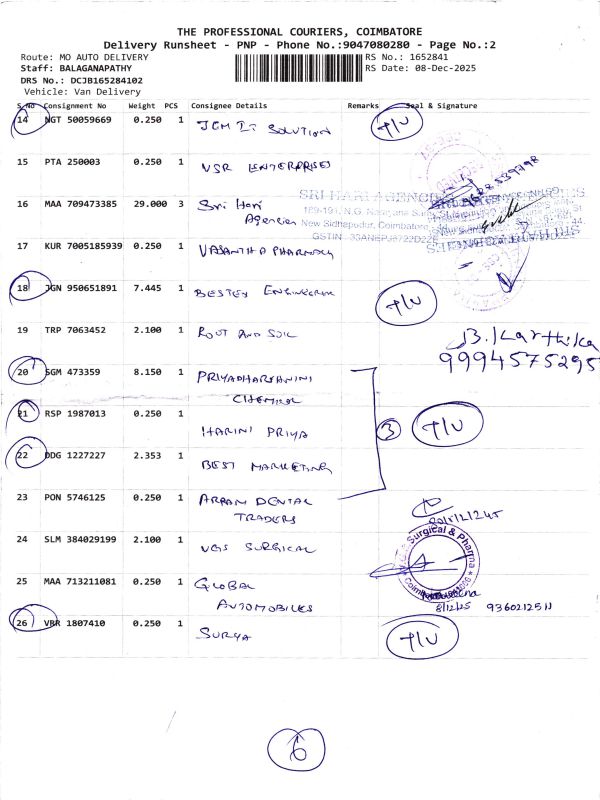 THE PROFESSIONAL COURIERS, COIMBATORE
Delivery Runsheet - PNP - Phone No.:9047080280 - Page No.:2
Route: MO AUTO DELIVERY RS No.: 1652841
Staff: BALAGANAPATHY RS Date: 08-Dec-2025
DRS No.: DCJB165284102
Vehicle: Van Delivery
S.No Consignment No Weight PCS Consignee Details Remarks Seal & Signature
14 NGT 50059669 0.250 1 JCM IT SOLUTION T/U
15 PTA 250003 0.250 1 VSR ENTERPRISES
16 MAA 709473385 29.000 3 Sri Hari
Agencies
SRI HARI AGENCIES
New Sidhapudur, Coimbatore
17 KUR 7005185939 0.250 1 VASANTHA PHARMACY
18 JGN 950651891 7.445 1 BESTEX ENGINEERING T/U
19 TRP 7063452 2.100 1 ROOT AND SOIL
B. Karthika
9994575295
20 SGM 473359 8.150 1 PRIYADHARSHNINI
CHEMICAL
21 RSP 1987013 0.250 1 HARINI PRIYA
3 T/U
22 DDG 1227227 2.353 1 BEST MARKETING
23 PON 5746125 0.250 1 ARPAN DENTAL
TRADERS
24 SLM 384029199 2.100 1 VGS SURGICAL
Surgical & Pharma
25 MAA 713211081 0.250 1 GLOBAL
AUTOMOBILES
8/12/25 9360212511
26 VBR 1807410 0.250 1 SURYA T/U
6